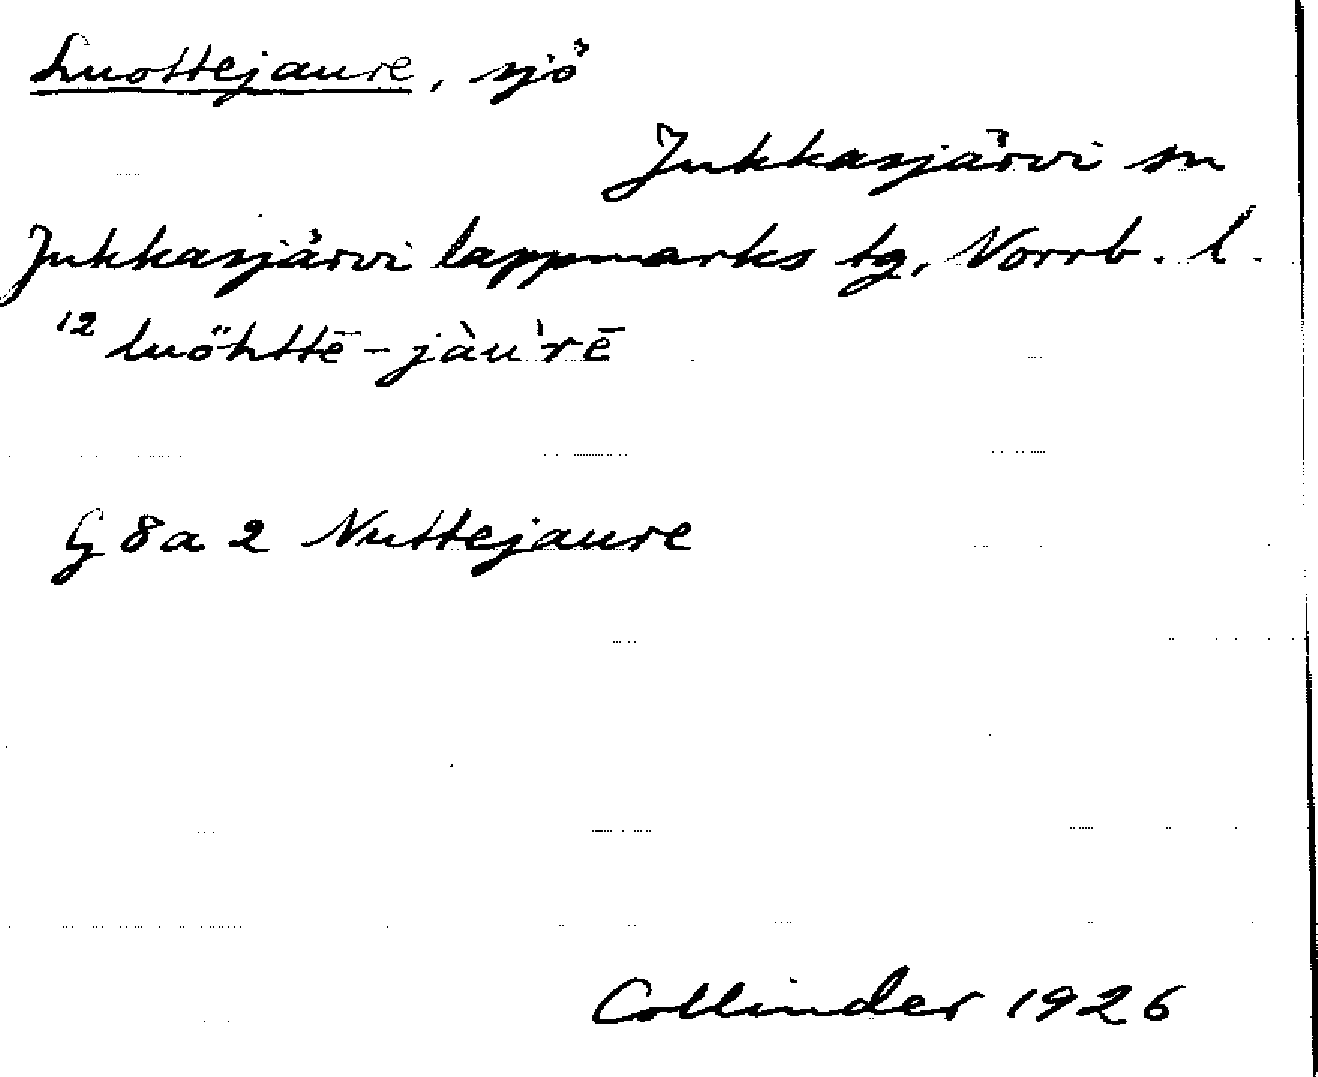 Luottejaure, sjö
Jukkasjärvi sn
Jukkasjärvi lappmarks tg, Norrb. l.
12 luöhttē-jàu'rē
G 8 a 2 Nuttejaure
Collinder 1926